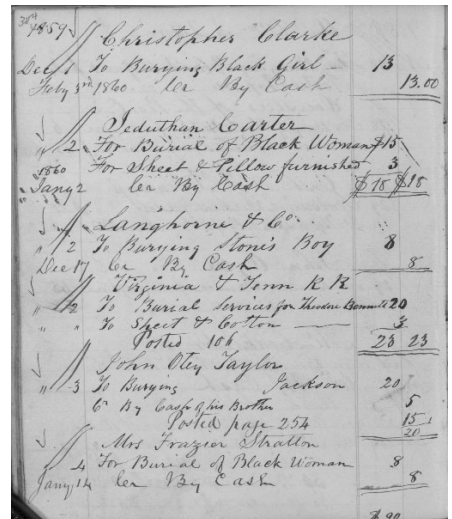 1859
Christopher Clarke
Dec 1 To Burying Black Girl - 13
Feby 3rd 1860 Cr By Cash 13.00
Jeduthan Carter
" 2 For Burial of Black Woman $15
For Sheet & Pillow furnished 3
1860
Jany 2 Cr By Cash $18 $18
Langhorne & Co.
" 2 To Burying Stone's Boy 8
Dec 17 Cr By Cash 8
Virginia & Tenn R R
" 2 To Burial Services for Theodore 20
" " To Sheet & Cotton 3
Posted 106 23 23
John Otey Taylor
" 3 To Burying Jackson 20
Cr By Cash of his Brother 5
Posted page 254 15
20
Mrs Frazier Stratton
" 4 For Burial of Black Woman 8
Jany 14 Cr By Cash 8
$ 90